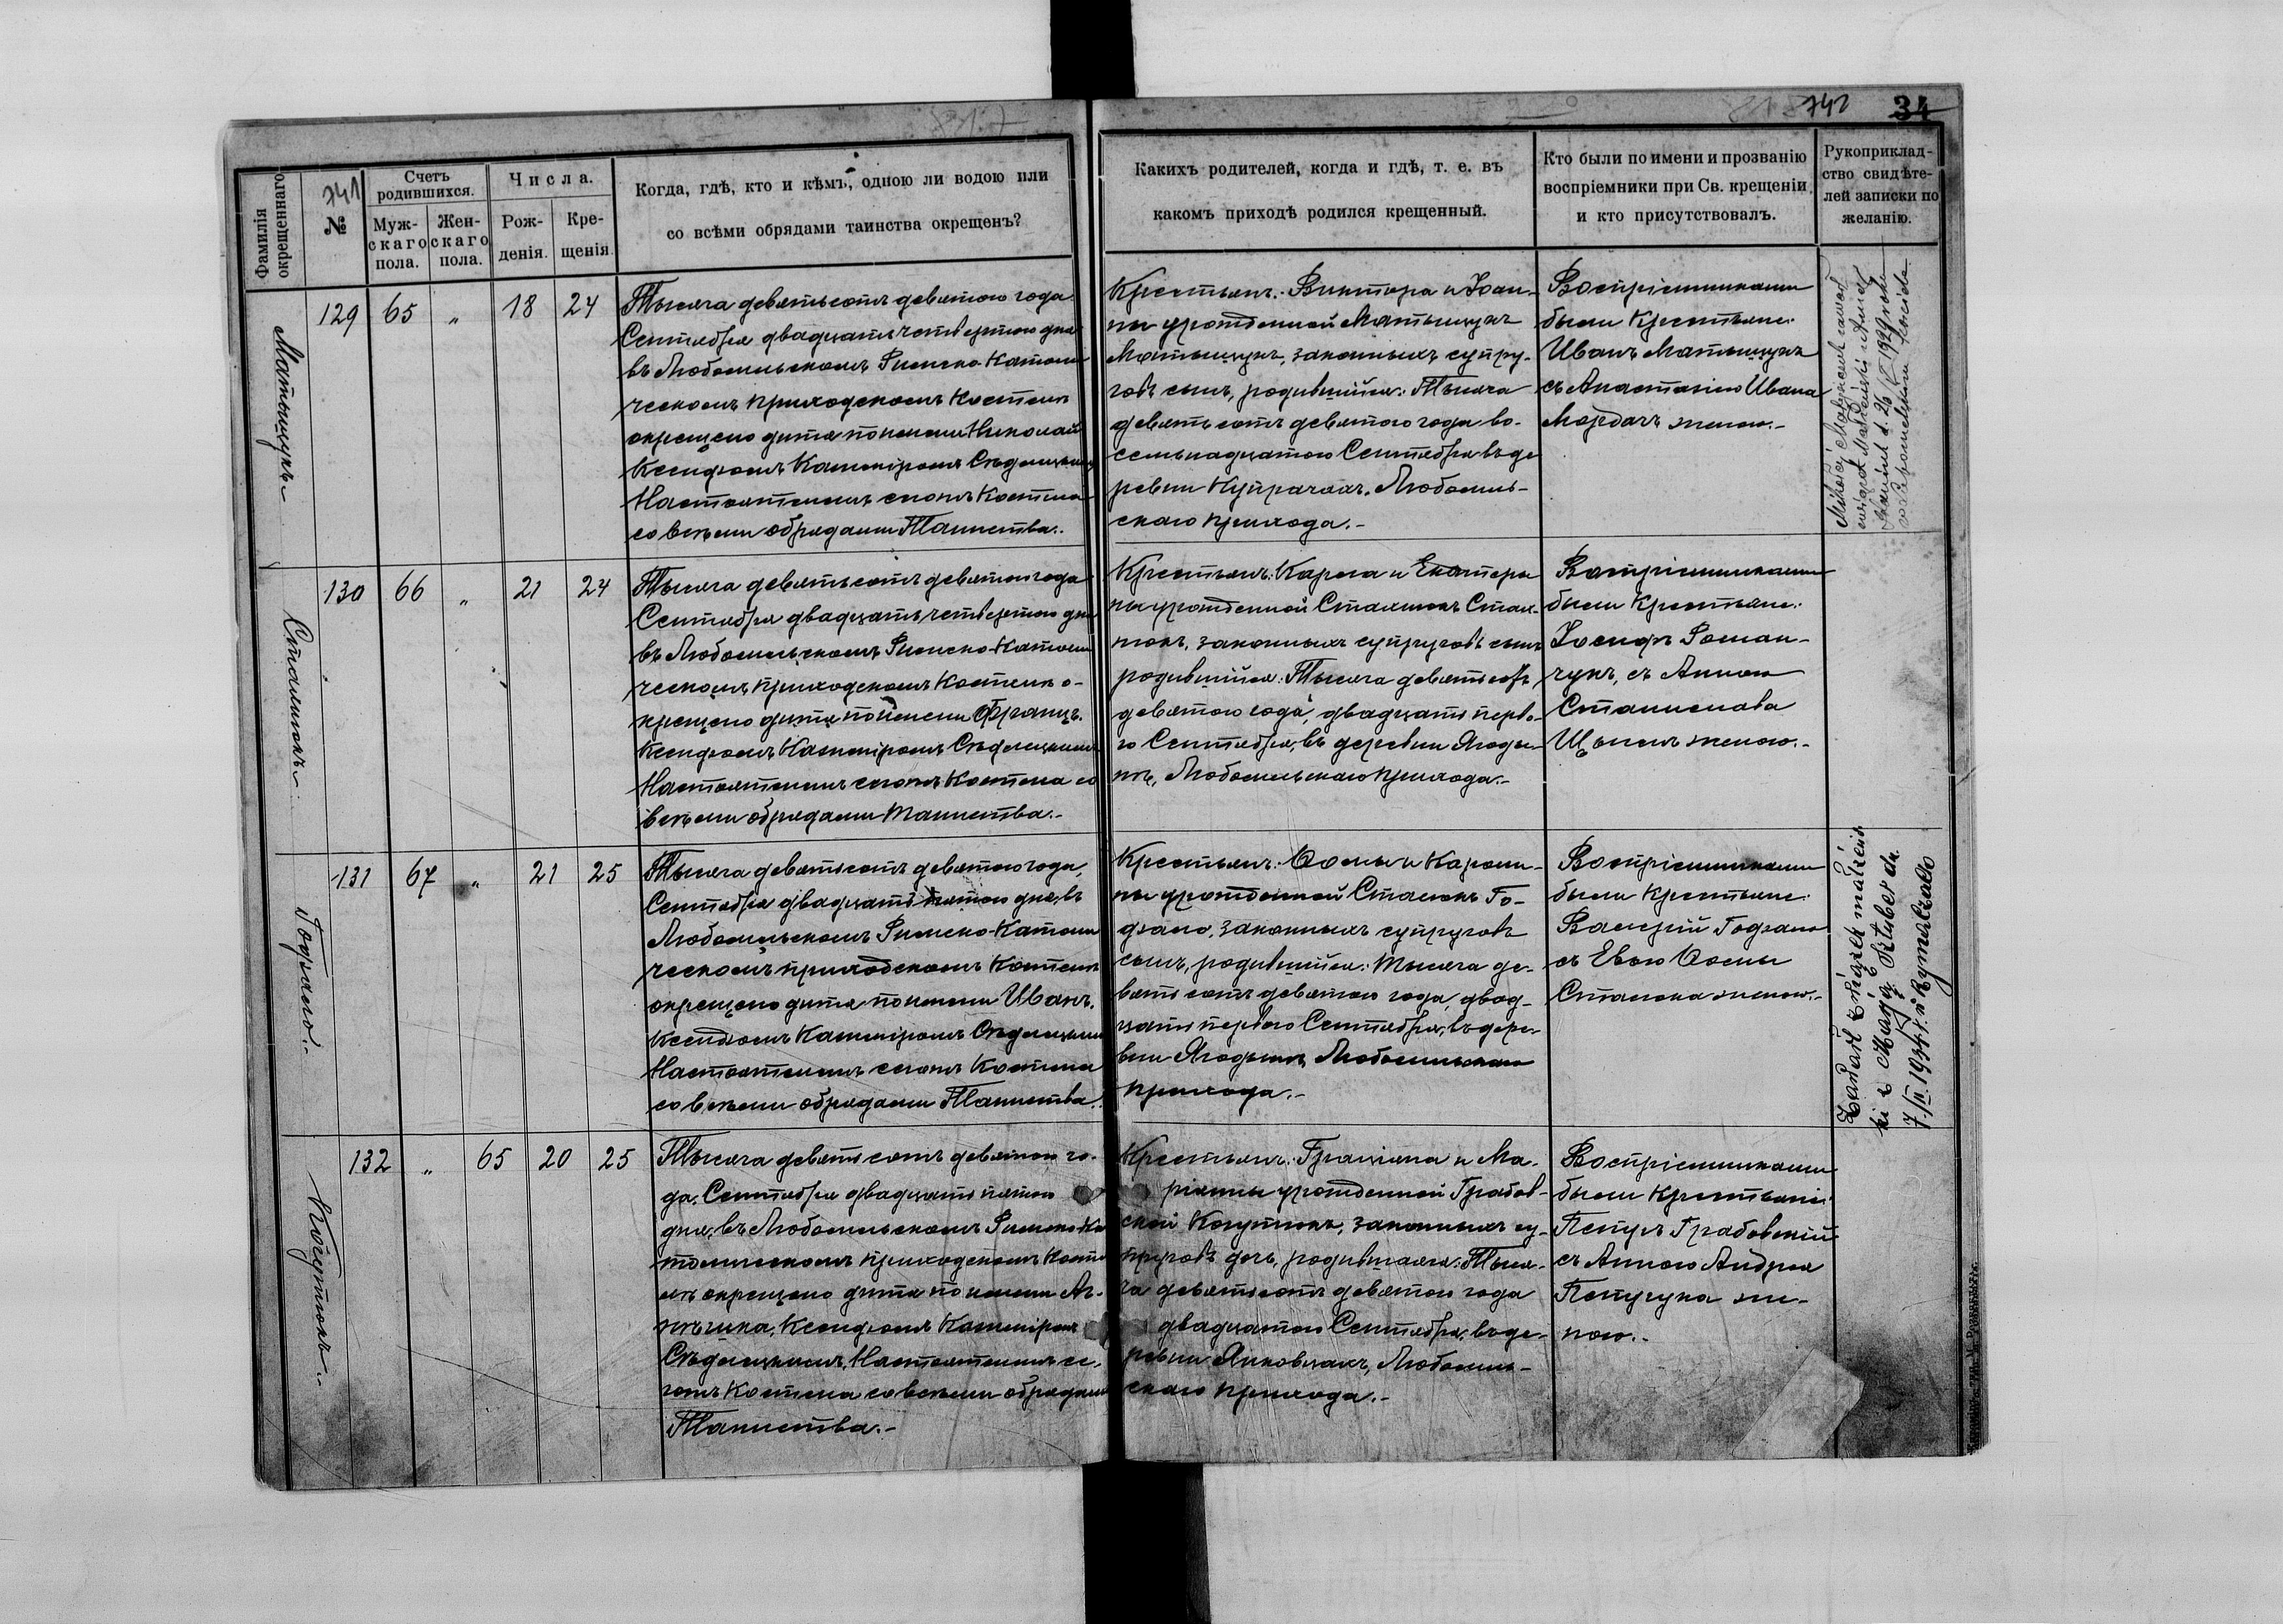 741
742
34
Фамилія окрещеннаго
№
Счетъ родившихся.
Муж-скаго пола.
Жен-скаго пола.
Числа.
Рож-денія.
Кре-щенія.
Когда, гдѣ, кто и кѣмъ, одною ли водою или
со всѣми обрядами таинства окрещенъ?
Какихъ родителей, когда и гдѣ, т. е. въ
какомъ приходѣ родился крещенный.
Кто были по имени и прозванію
воспріемники при Св. крещеніи
и кто присутствовалъ.
Рукоприклад-
ство свидѣте-
лей записки по
желанію.
Матыщукъ
129 65 " 18 24
Тысяча девятьсотъ девятого года
Сентября двадцать четвертого дня
въ Любомльскомъ Римско-Католи
ческомъ приходскомъ Костелѣ
окрещено дитя по имени Николай
Ксендзомъ Казиміромъ Сѣдлецкимъ
Настоятелемъ сногоъ Костела
со всѣми обрядами Таинства.
Крестьянъ: Виктора и Іоан-
ны урожденной Матыщукъ
Матыщукъ, законныхъ супру-
говъ сынъ, родившійся: Тысяча
девятьсотъ девятого года во-
семьнадцатого Сентября въ де
ревни Купрачахъ, Любомль-
скаго прихода.-
Воспріемниками
были Крестьяне:
Иванъ Матыщукъ
съ Анастасіею Ивана
Мордачъ женою.-
1929 roku
Сталюкъ
130 66 " 21 24
Тысяча девятьсотъ девятого года
Сентября двадцать четвертого дня
въ Любомльскомъ Римско-Католи
ческомъ приходскомъ Костелѣ о-
крещено дитя по имени Францъ.
Ксендзомъ Казиміромъ Сѣдлецкимъ
Настоятелемъ сногоъ Костела со
всѣми обрядами Таинства.-
Крестьянъ: Кароля и Екатери
ны урожденной Сталюкъ Стал-
юкъ, законныхъ супруговъ сынъ
родившійся: Тысяча девятьсотъ
девятого года, двадцать перво-
го Сентября, въ деревни Ягоды-
нѣ, Любомльскаго прихода.-
Воспріемниками
были Крестьяне:
Іосифъ Роман-
чукъ, съ Анною
Станислава
женою.-
Годзяло.-
131 67 " 21 25
Тысяча девятьсотъ девятого года,
Сентября двадцать пятого дня, въ
Любомльскомъ Римско-Католи
ческомъ приходскомъ Костелѣ
окрещено дитя по имени Иванъ,
Ксендзомъ Казиміромъ Сѣдлецкимъ
Настоятелемъ сногоъ Костела
со всѣми обрядами Таинства.
Крестьянъ: Ѳомы и Кароли-
ны урожденной Сталюкъ Го-
дзяло, законныхъ супруговъ
сынъ, родившійся: Тысяча де-
вятьсотъ девятого года, двад-
цать перваго Сентября, въ дере-
вни Ягодынѣ, Любомльскаго
прихода.-
Воспріемниками
были Крестьяне:
Валерій Годзяло
съ Евою Ѳомы
Сталюка женою.-
Zawarł związek małżeńs
ki z
7/II. 1934 r. w Rymaczach
Когутюкъ.-
132 " 65 20 25
Тысяча девятьсотъ девятого го-
да, Сентября двадцать пятого
дня, въ Любомльскомъ Римско-Ка
толическомъ приходскомъ Косте
лѣ окрещено дитя по имени Аг-
нѣшка, Ксендзомъ Казиміромъ
Сѣдлецкимъ, Настоятелемъ се-
гоъ Костела со всѣми обрядами
Таинства.-
Крестьянъ: Граціяна и Ма-
ріанны урожденной Грабов-
ской Когутюкъ, законныхъ су-
пруговъ дочь, родившаяся: Тыся-
ча девятьсотъ девятого года
двадцатого Сентября, въ де-
ревни Янковцахъ, Любомль-
скаго прихода.-
Воспріемниками
были Крестьяне:
Петръ Грабовскій
съ Анною Андрея
Петрука же-
ною.-